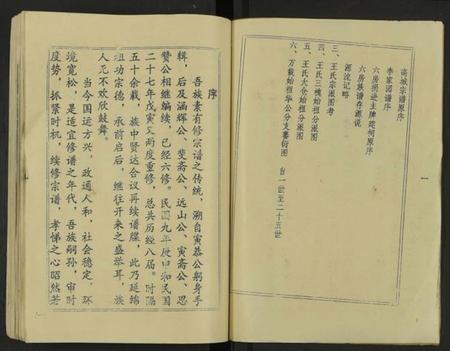 高城宗谱原序
李家园谱序
六房捐进主牌建祠原序
六房族谱存源说
源流记略
三、王氏宗派图考
四、王氏三槐始祖分派图
五、王氏大仓始祖分派图
六、万载始祖华公分支蕃衍图 自一世至二十五世
序
吾族素有修宗谱之传统，溯自寅恭公躬身手
辑，后及涵辉公、斐斋公、远山公、寅斋公、思
赞公相继编续，已经六修。民国九年庚申和民国
二十七年戊寅又两度重修，总共历经八届。时隔
五十余载，族中贤达合议再续谱牒，此乃延绵
祖功宗德，承前启后，继往开来之盛举耳，族
人无不欢欣鼓舞。
当今国运方兴，政通人和，社会稳定，环
境宽松，是适宜修谱之年代，吾族嗣孙，审时
度势，抓紧时机，续修宗谱，孝悌之心昭然若